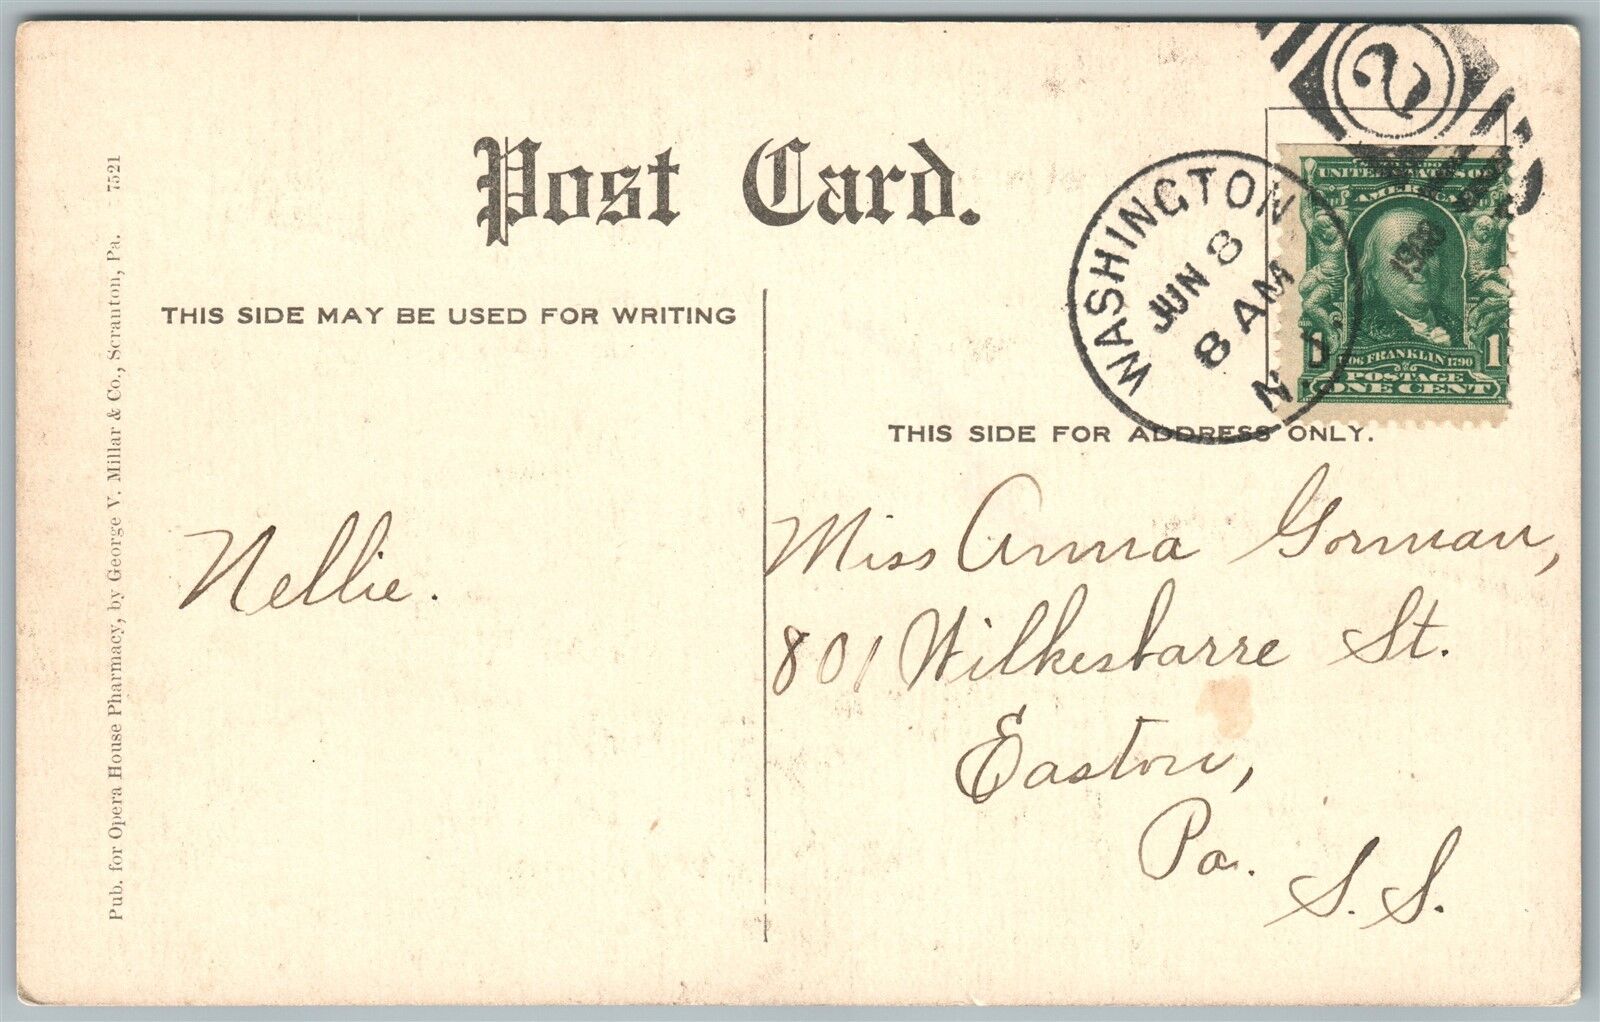 Post Card.
THIS SIDE MAY BE USED FOR WRITING
THIS SIDE FOR ADDRESS ONLY.
Pub. for Opera House Pharmacy, by George V. Millar & Co., Scranton, Pa. 7521
WASHINGTON
JUN 8
8 AM
N. J.
2
1908
UNITED STATES OF
AMERICA
FRANKLIN 1790
1
POSTAGE
ONE CENT
Nellie.
Miss Anna Gorman,
801 Wilkesbarre St.
Easton,
Pa.
S. S.